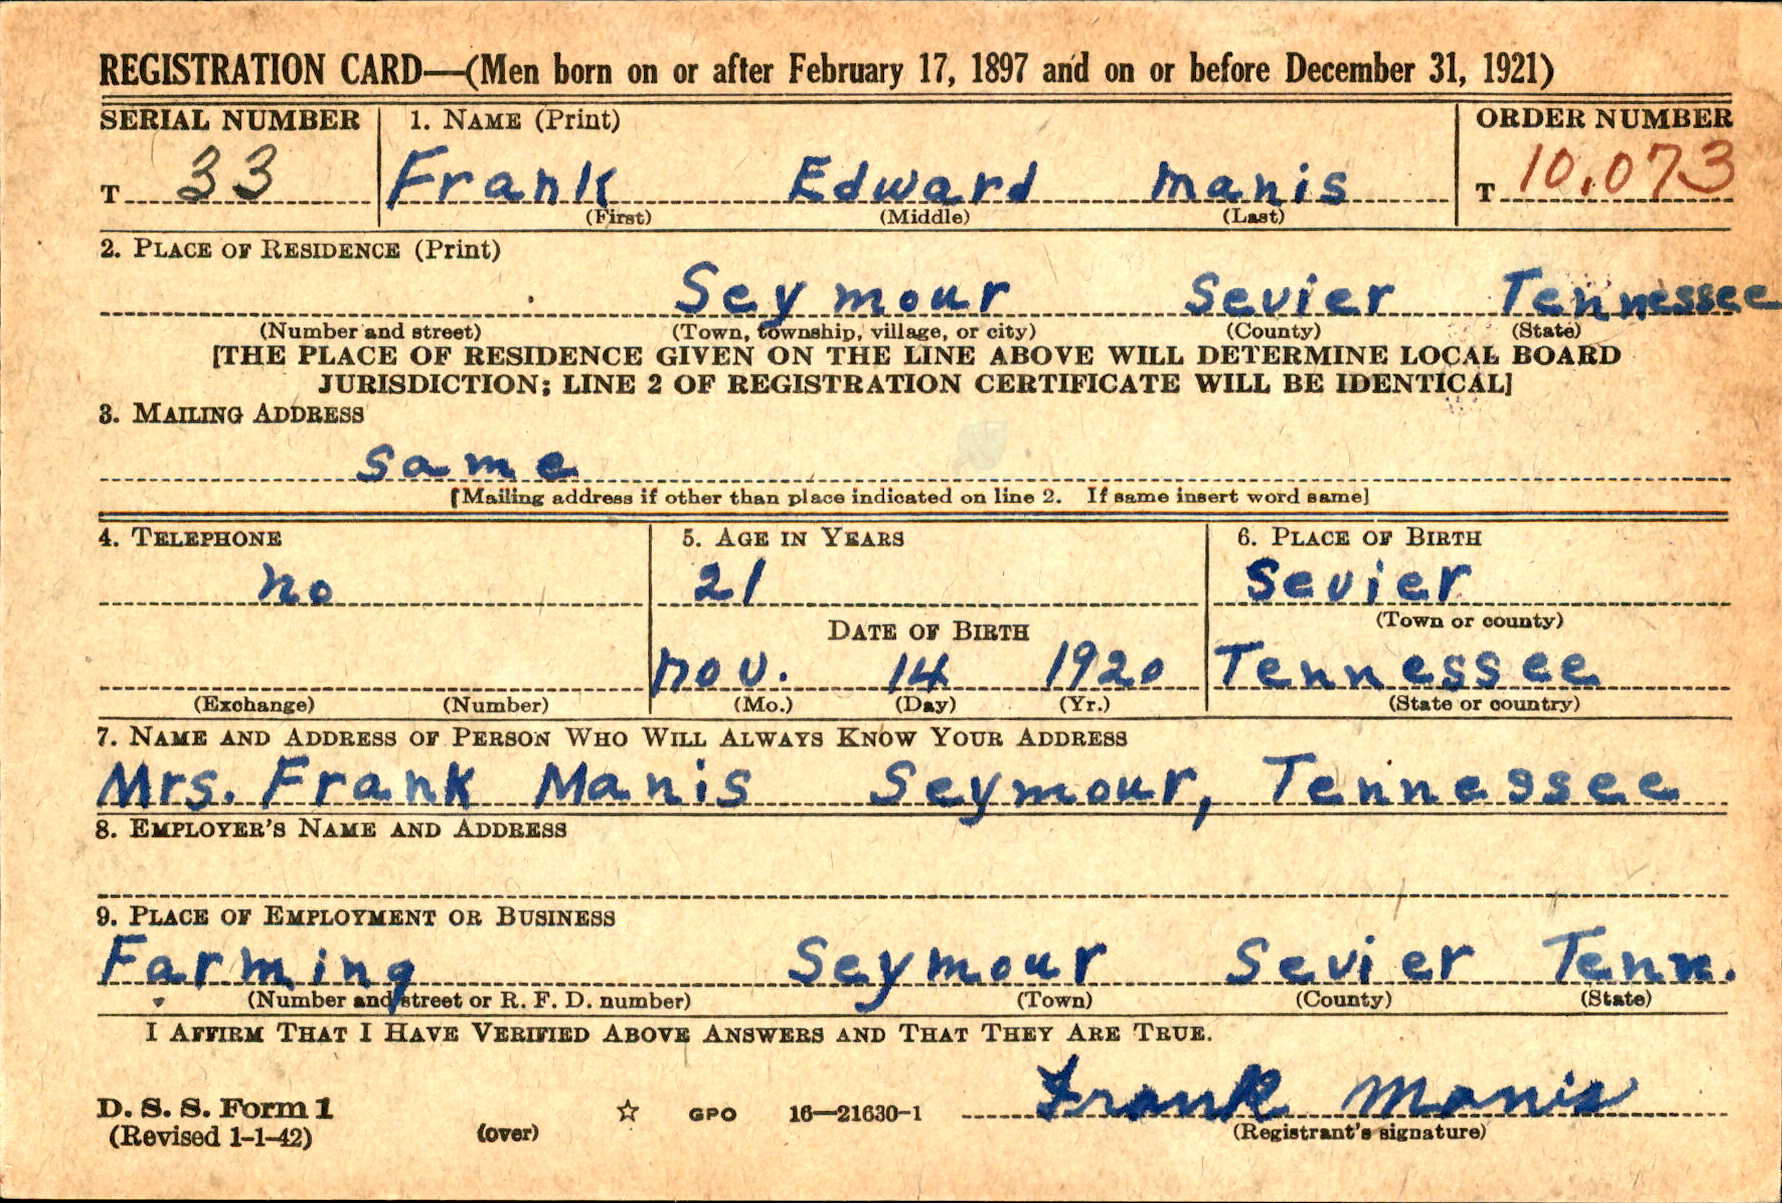 REGISTRATION CARD—(Men born on or after February 17, 1897 and on or before December 31, 1921)
SERIAL NUMBER 1. NAME (Print) ORDER NUMBER
T 33 Frank Edward Manis T 10,073
(First) (Middle) (Last)
2. PLACE OF RESIDENCE (Print)
Seymour Sevier Tennessee
(Number and street) (Town, township, village, or city) (County) (State)
[THE PLACE OF RESIDENCE GIVEN ON THE LINE ABOVE WILL DETERMINE LOCAL BOARD
JURISDICTION; LINE 2 OF REGISTRATION CERTIFICATE WILL BE IDENTICAL]
3. MAILING ADDRESS
Same
[Mailing address if other than place indicated on line 2. If same insert word same]
4. TELEPHONE 5. AGE IN YEARS 6. PLACE OF BIRTH
no 21 Sevier
DATE OF BIRTH (Town or county)
nov. 14 1920 Tennessee
(Exchange) (Number) (Mo.) (Day) (Yr.) (State or country)
7. NAME AND ADDRESS OF PERSON WHO WILL ALWAYS KNOW YOUR ADDRESS
Mrs. Frank Manis Seymour, Tennessee
8. EMPLOYER'S NAME AND ADDRESS
9. PLACE OF EMPLOYMENT OR BUSINESS
Farming Seymour Sevier Tenn.
(Number and street or R. F. D. number) (Town) (County) (State)
I AFFIRM THAT I HAVE VERIFIED ABOVE ANSWERS AND THAT THEY ARE TRUE.
Frank Manis
D. S. S. Form 1 ☆ GPO 16—21630-1
(Revised 1-1-42) (over) (Registrant's signature)